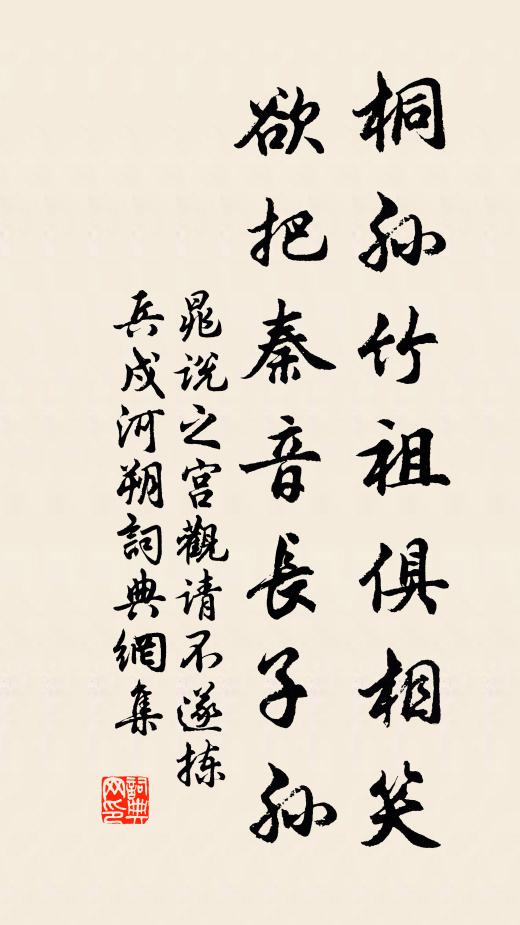 桐孙竹祖俱相笑
欲把秦音長子孙
晁说之宫觀请不遂拣
兵戍河朔詞典網集
詞典
网印